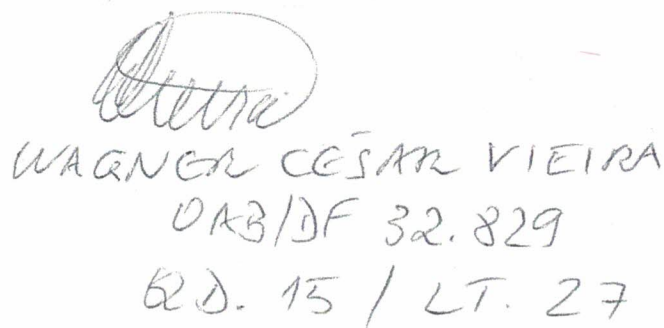 WAGNER CÉSAR VIEIRA
OAB/DF 32.829
QD. 15 / LT. 27